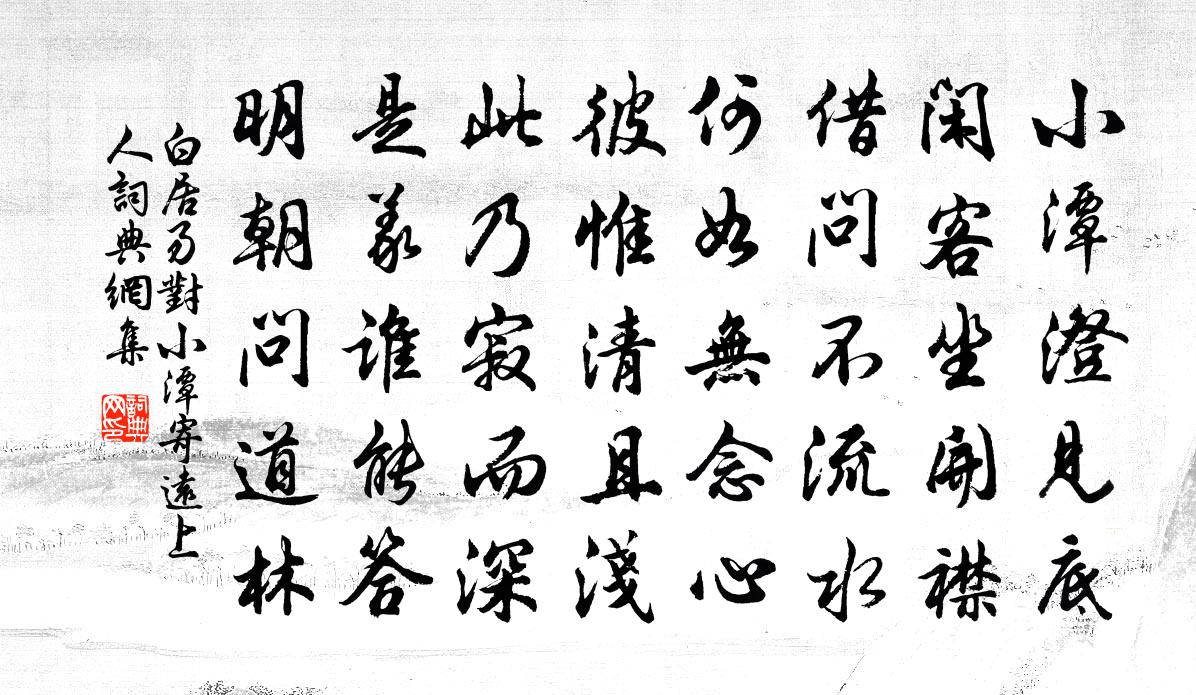 小潭澄見底
閑客坐開襟
借問不流水
何如無念心
彼惟清且淺
此乃寂而深
是義誰能答
明朝問道林
白居易對小潭寄遠上
人詞典網集
詞典
网印